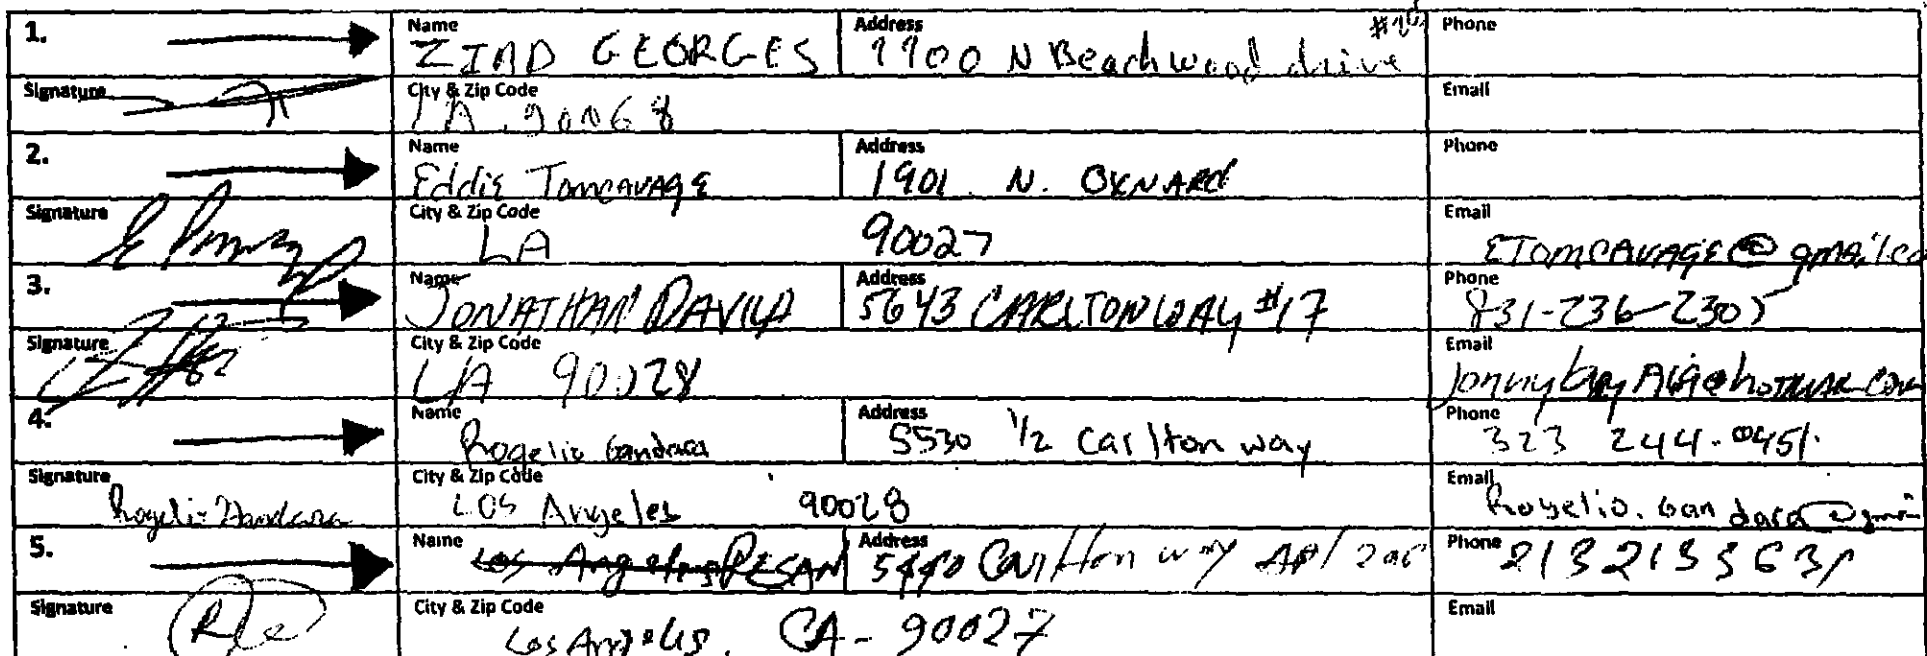 1. Name ZIAD GEORGES Address 1900 N Beachwood drive Phone
Signature City & Zip Code LA. 90068 Email
2. Name Eddie Tomcavage Address 1901 N. OXNARD Phone
Signature City & Zip Code LA 90027 Email ETOMCAVAGE@gmail.co
3. Name JONATHAN DAVILA Address 5643 CARLTON WAY #17 Phone 831-236-2305
Signature City & Zip Code LA 90028 Email
4. Name Rogelio Gandara Address 5530 1/2 Carlton way Phone 323 244-0451
Signature Rogelio Gandara City & Zip Code Los Angeles 90028 Email Rogelio.Gandara@gmai
5. Name Los Angeles PESAN Address 5440 Carlton way Apt 206 Phone
Signature City & Zip Code Los Angeles, CA- 90027 Email